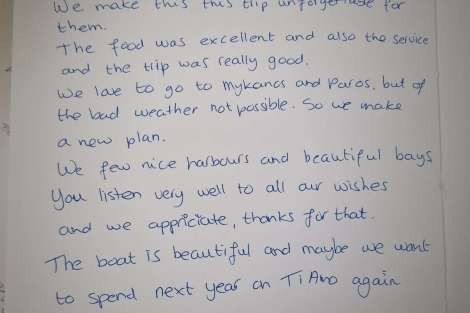 We make this this trip unforgettable for
them.
The food was excellent and also the service
and the trip was really good.
We love to go to Mykanos and Paros, but of
the bad weather not possible. So we make
a new plan.
We few nice harbours and beautiful bays
You listen very well to all our wishes
and we appriciate, thanks for that.
The boat is beautiful and maybe we want
to spend next year on TiAmo again